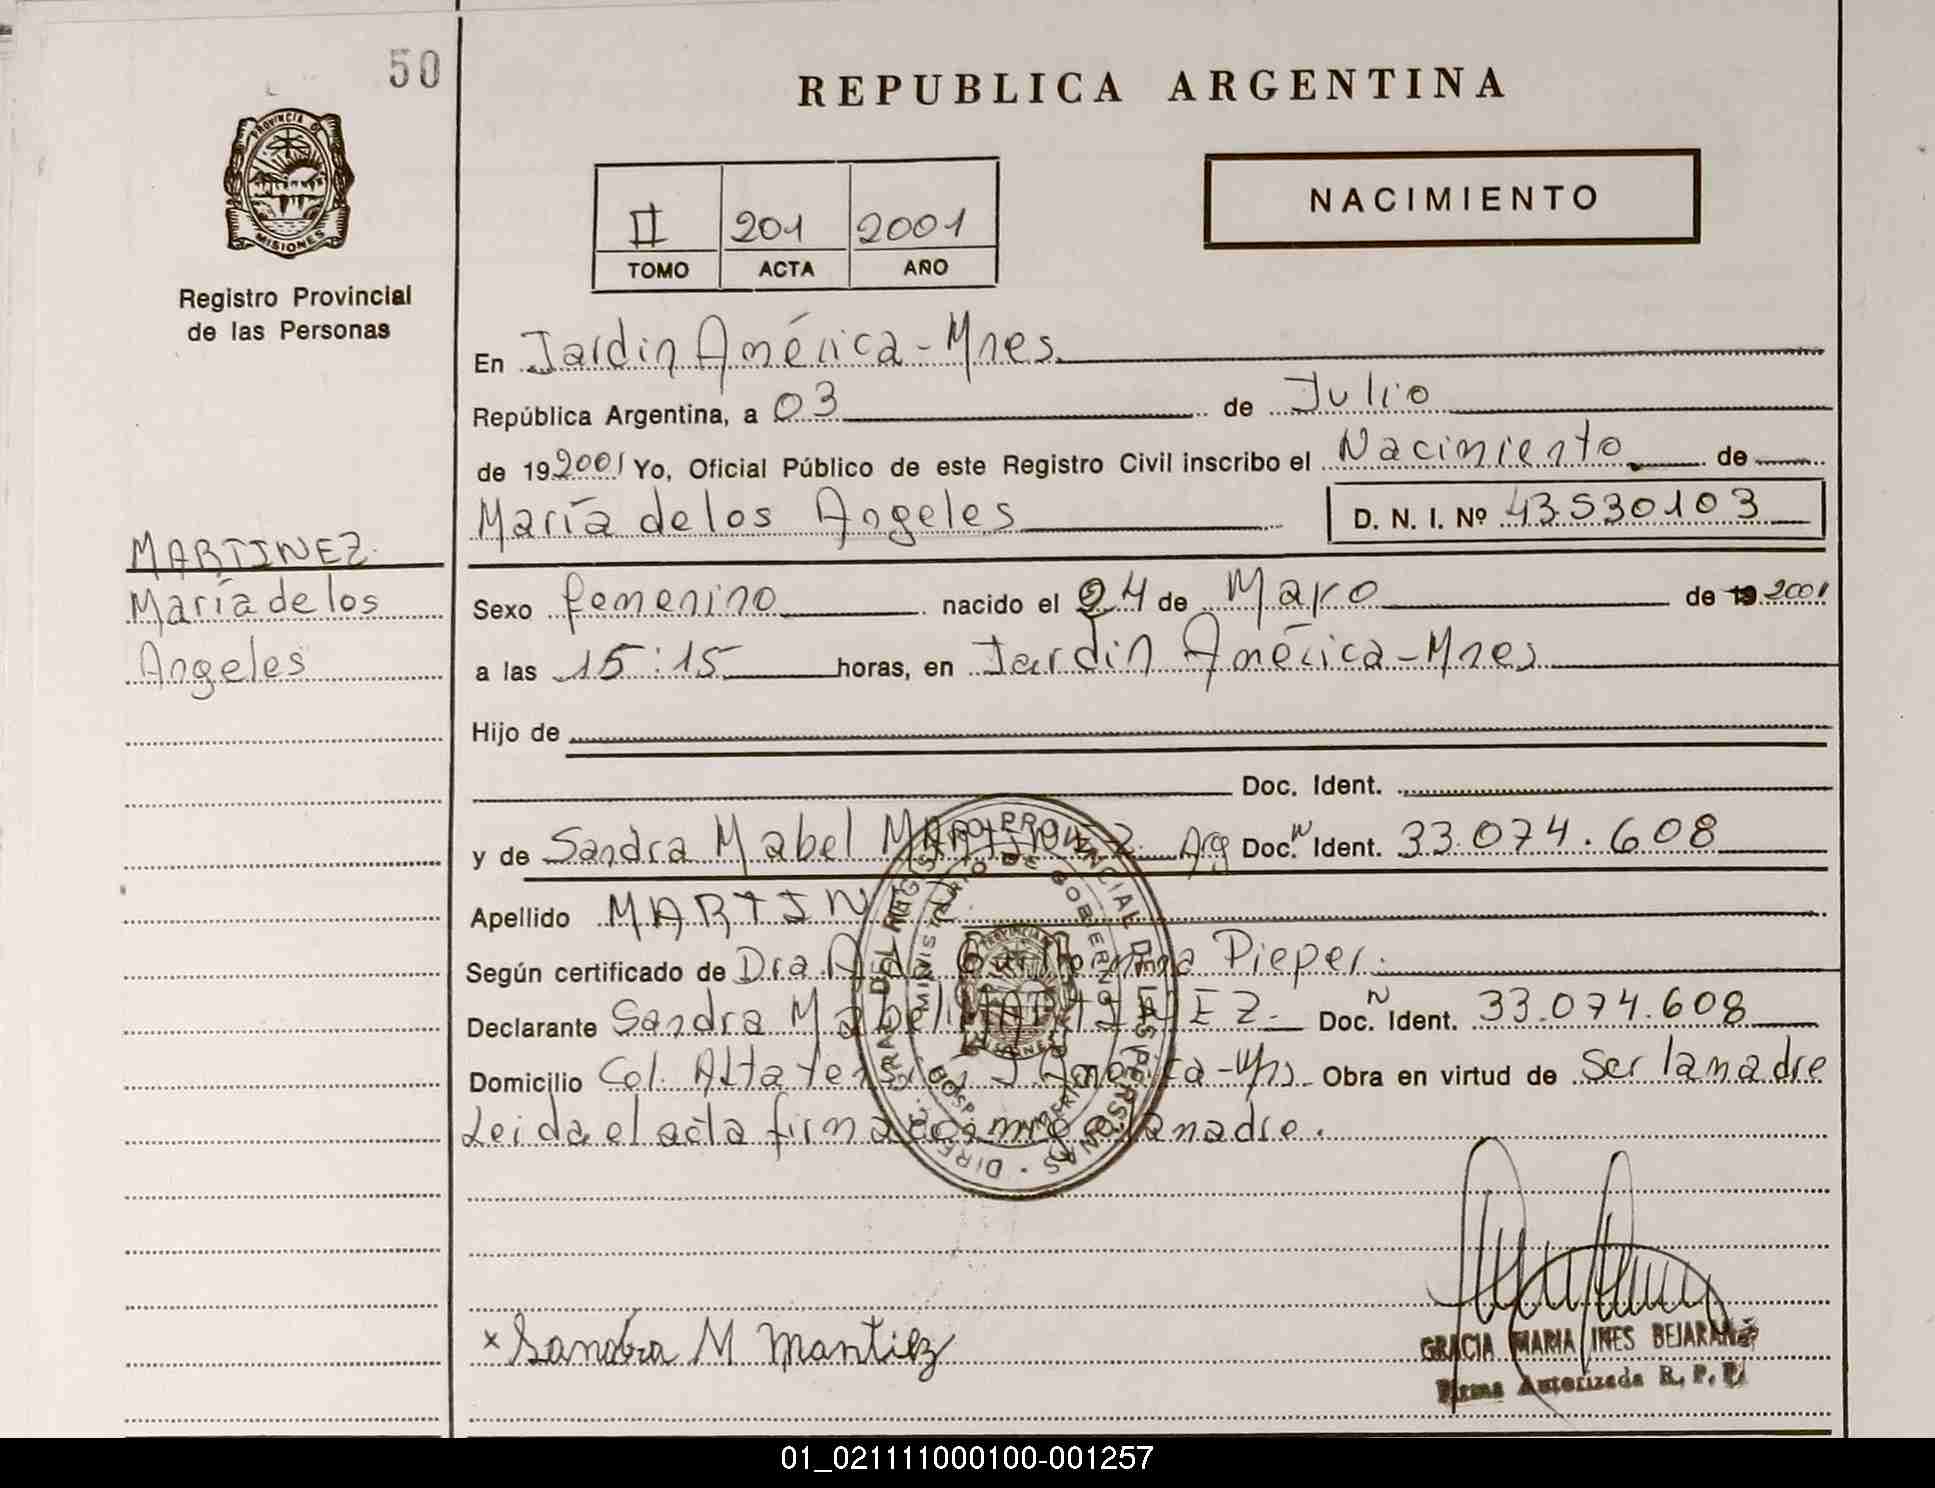 50
REPUBLICA ARGENTINA
PROVINCIA DE
MISIONES
Registro Provincial
de las Personas
II 201 2001
TOMO ACTA AÑO
NACIMIENTO
En Jardin América - Mnes
República Argentina, a 03 de Julio
de 19 2001 Yo, Oficial Público de este Registro Civil inscribo el Nacimiento de
María de los Angeles D. N. I. Nº 43.530103
MARTINEZ
María de los
Angeles
Sexo femenino nacido el 24 de Mayo de 19 2001
a las 15:15 horas, en Jardin América - Mnes
Hijo de
Doc. Ident.
y de Sandra Mabel MARTINEZ Arg Doc. N Ident. 33.074.608
Apellido MARTINEZ
Según certificado de Dra. Pieper.
Declarante Sandra Mabel MARTINEZ. Doc. N Ident. 33.074.608
Domicilio Col. Alta tensión J. América - Mns Obra en virtud de Ser la madre
Leida el acta firma conmigo la madre.
DIREC. GRAL. DEL REGISTRO PROVINCIAL DE LAS PERSONAS
MINISTERIO DE GOBIERNO
HOSP.
x Sandra M Mantiez
GRACIA MARIA INES BEJARANO
Firma Autorizada R. P. P.
01_021111000100-001257